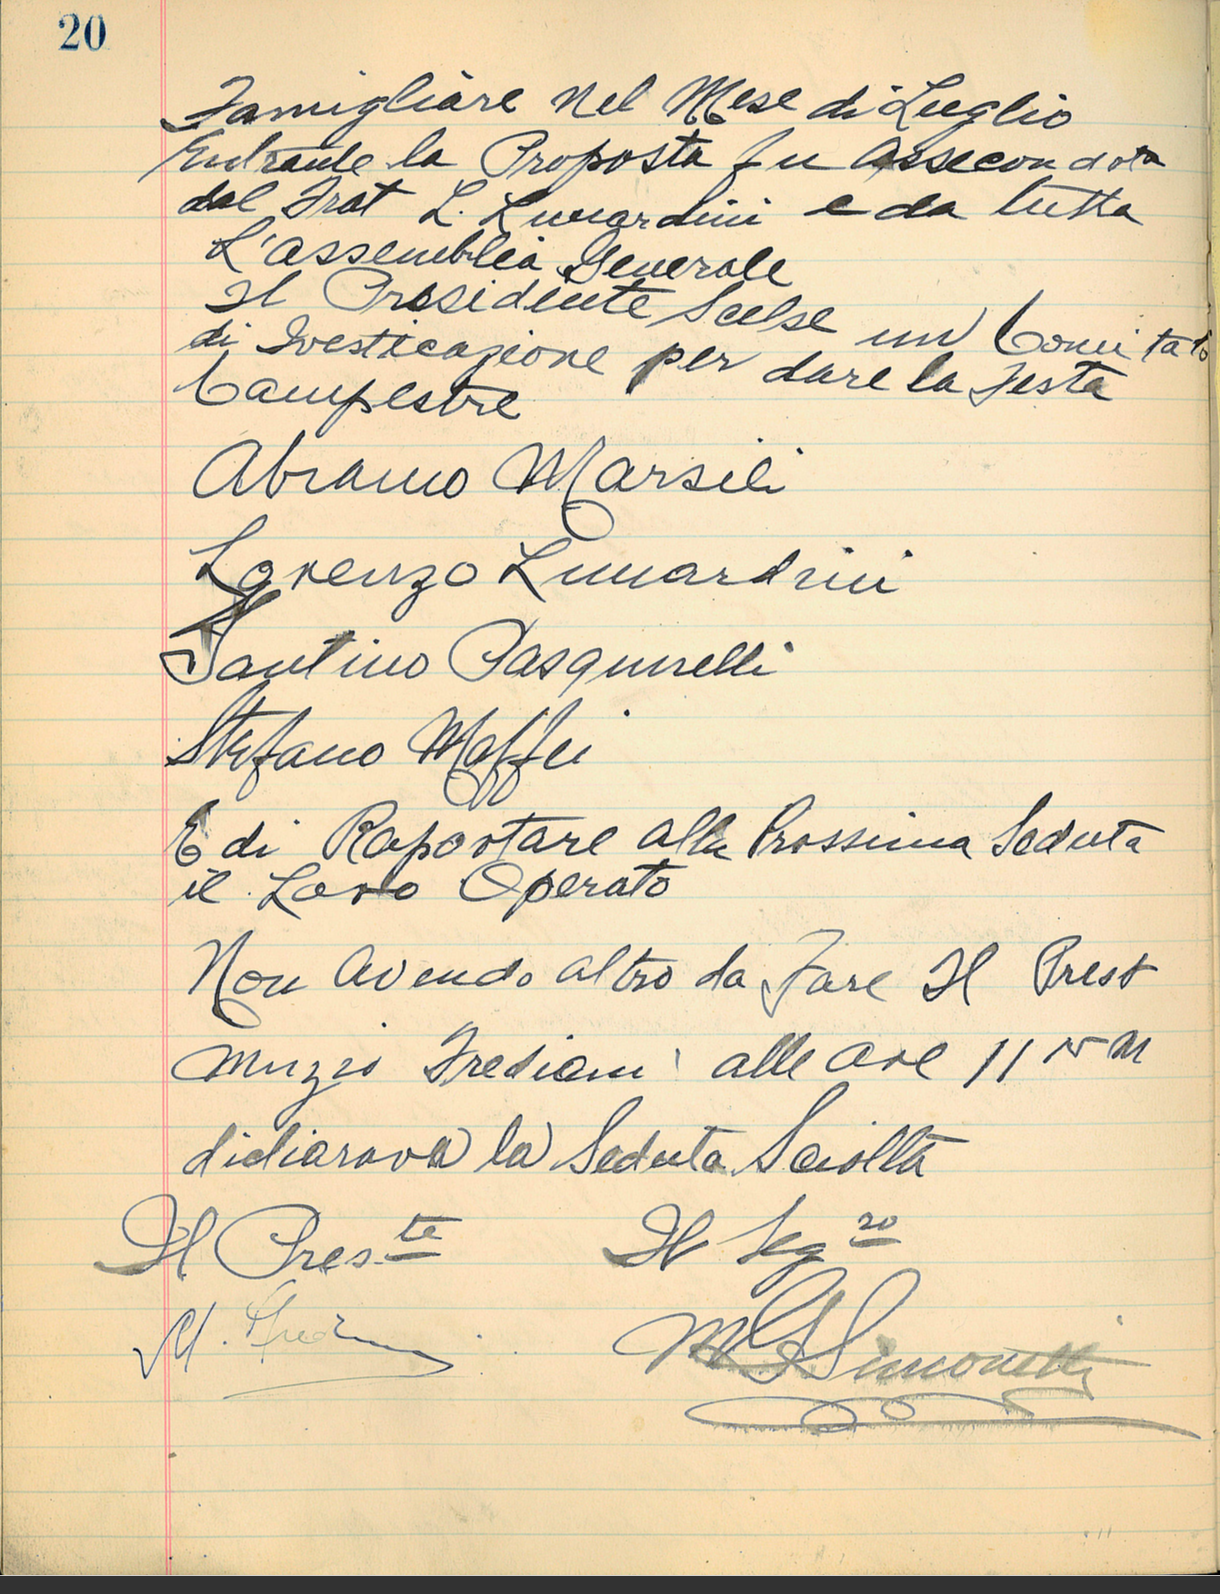 20
Famigliàre Nel Mese di Luglio
Entrante la Proposta fu Assecondata
dal Frat L. Lunardini e da tutta
L'assemblea Generale
Il Presidente Scelse un Comitato
di Ivesticazione per dare la Festa
Campestre
Abramo Marsili
Lorenzo Lunardini
Santino Pasquinelli
Stefano Maffei
E di Raportare alla Prossima Seduta
il Loro Operato
Non Avendo altro da Fare Il Prest
Muzio Frediani alle ore 11 15 M
dichiarava la Seduta Sciolta
Il Pres.te Il Segro
M. Fredi M G Simonetti